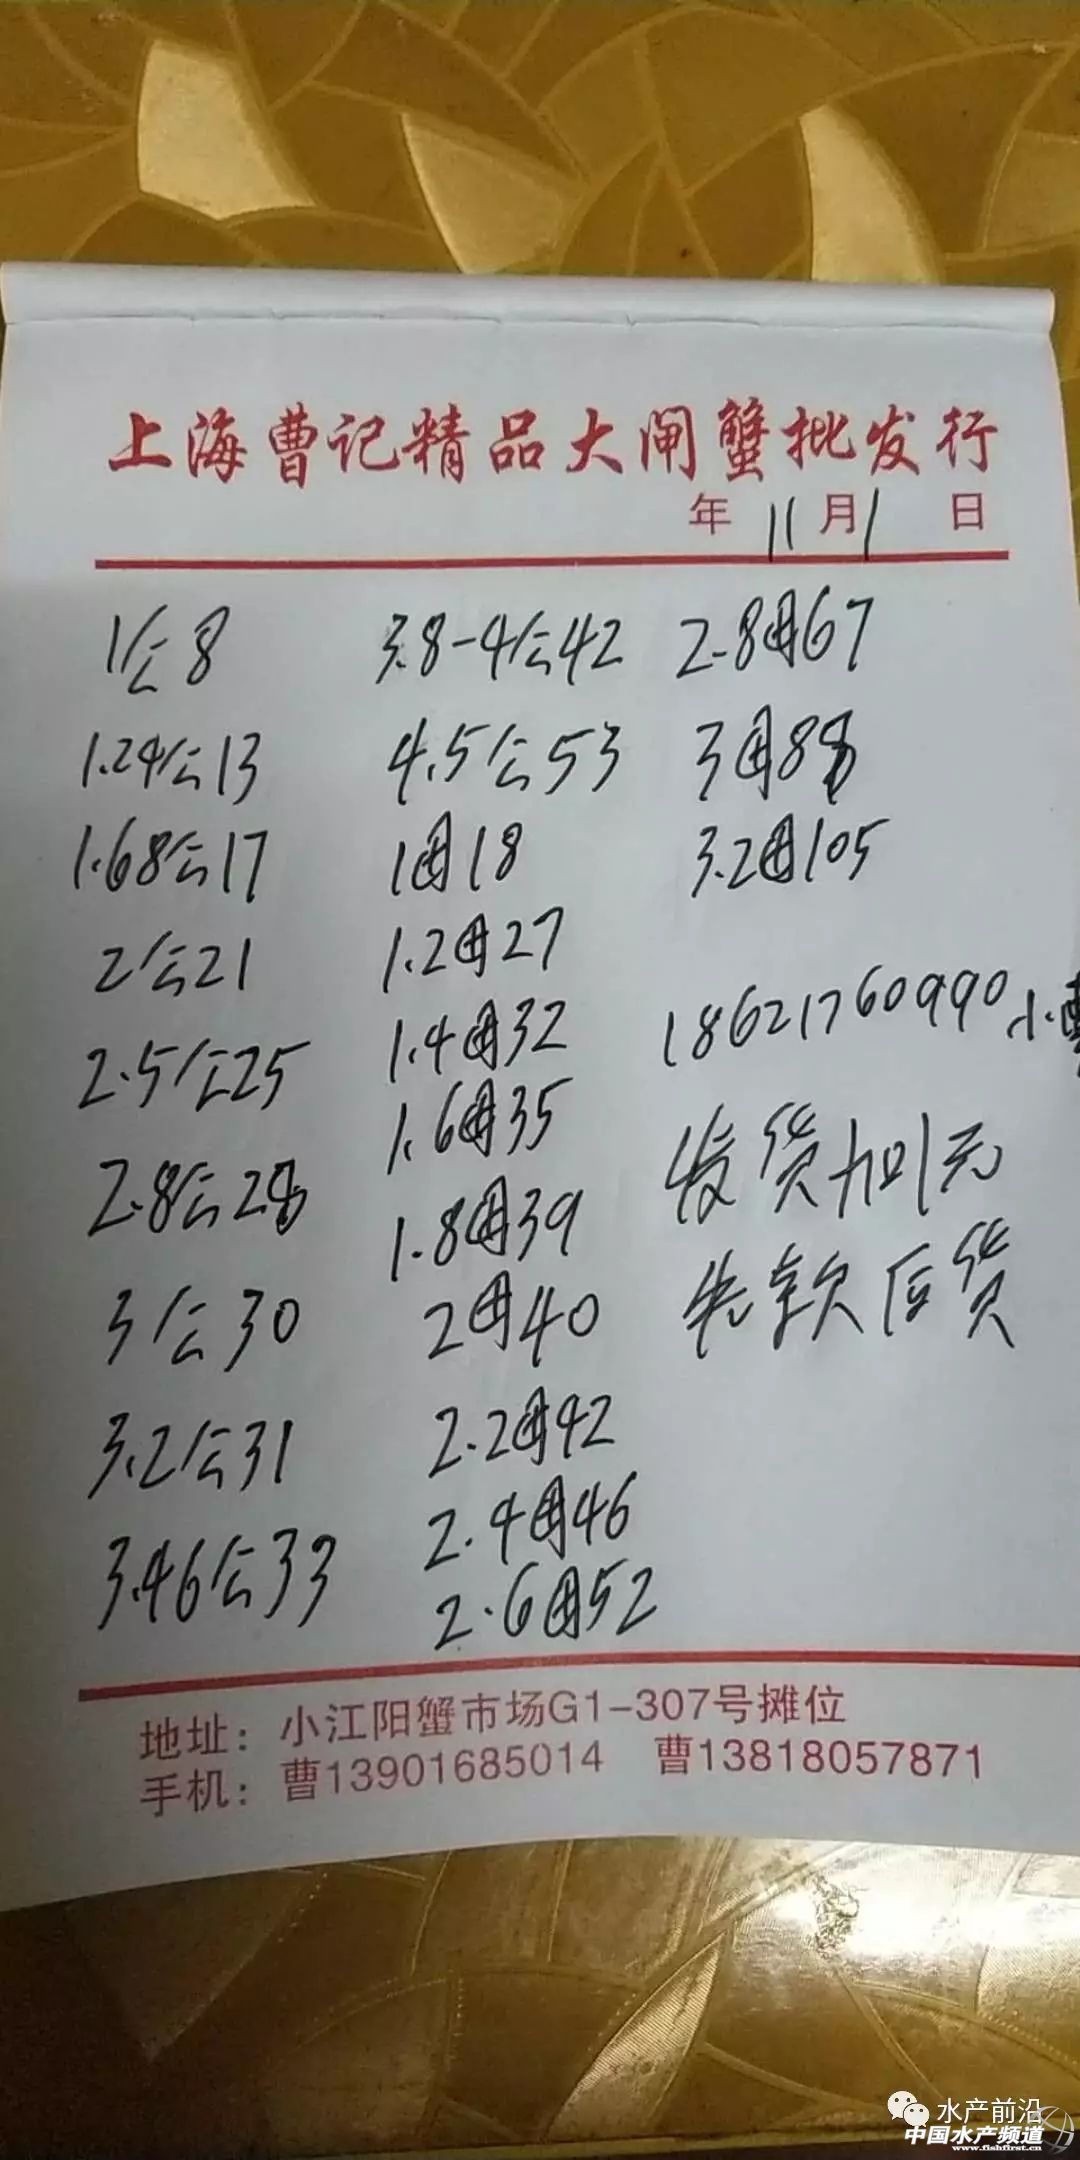 上海曹记精品大闸蟹批发行
年 11 月 1 日
1公8
1.24公13
1.68公17
2公21
2.5公25
2.8公28
3公30
3.2公31
3.46公33
3.8-4公42
4.5公53
1母18
1.2母27
1.4母32
1.6母35
1.8母39
2母40
2.2母42
2.4母46
2.6母52
2.8母67
3母88
3.2母105
18621760990小曹
发货加1元
先款后货
地址：小江阳蟹市场G1-307号摊位
手机：曹13901685014 曹13818057871
水产前沿
中国水产频道
www.fishfirst.cn